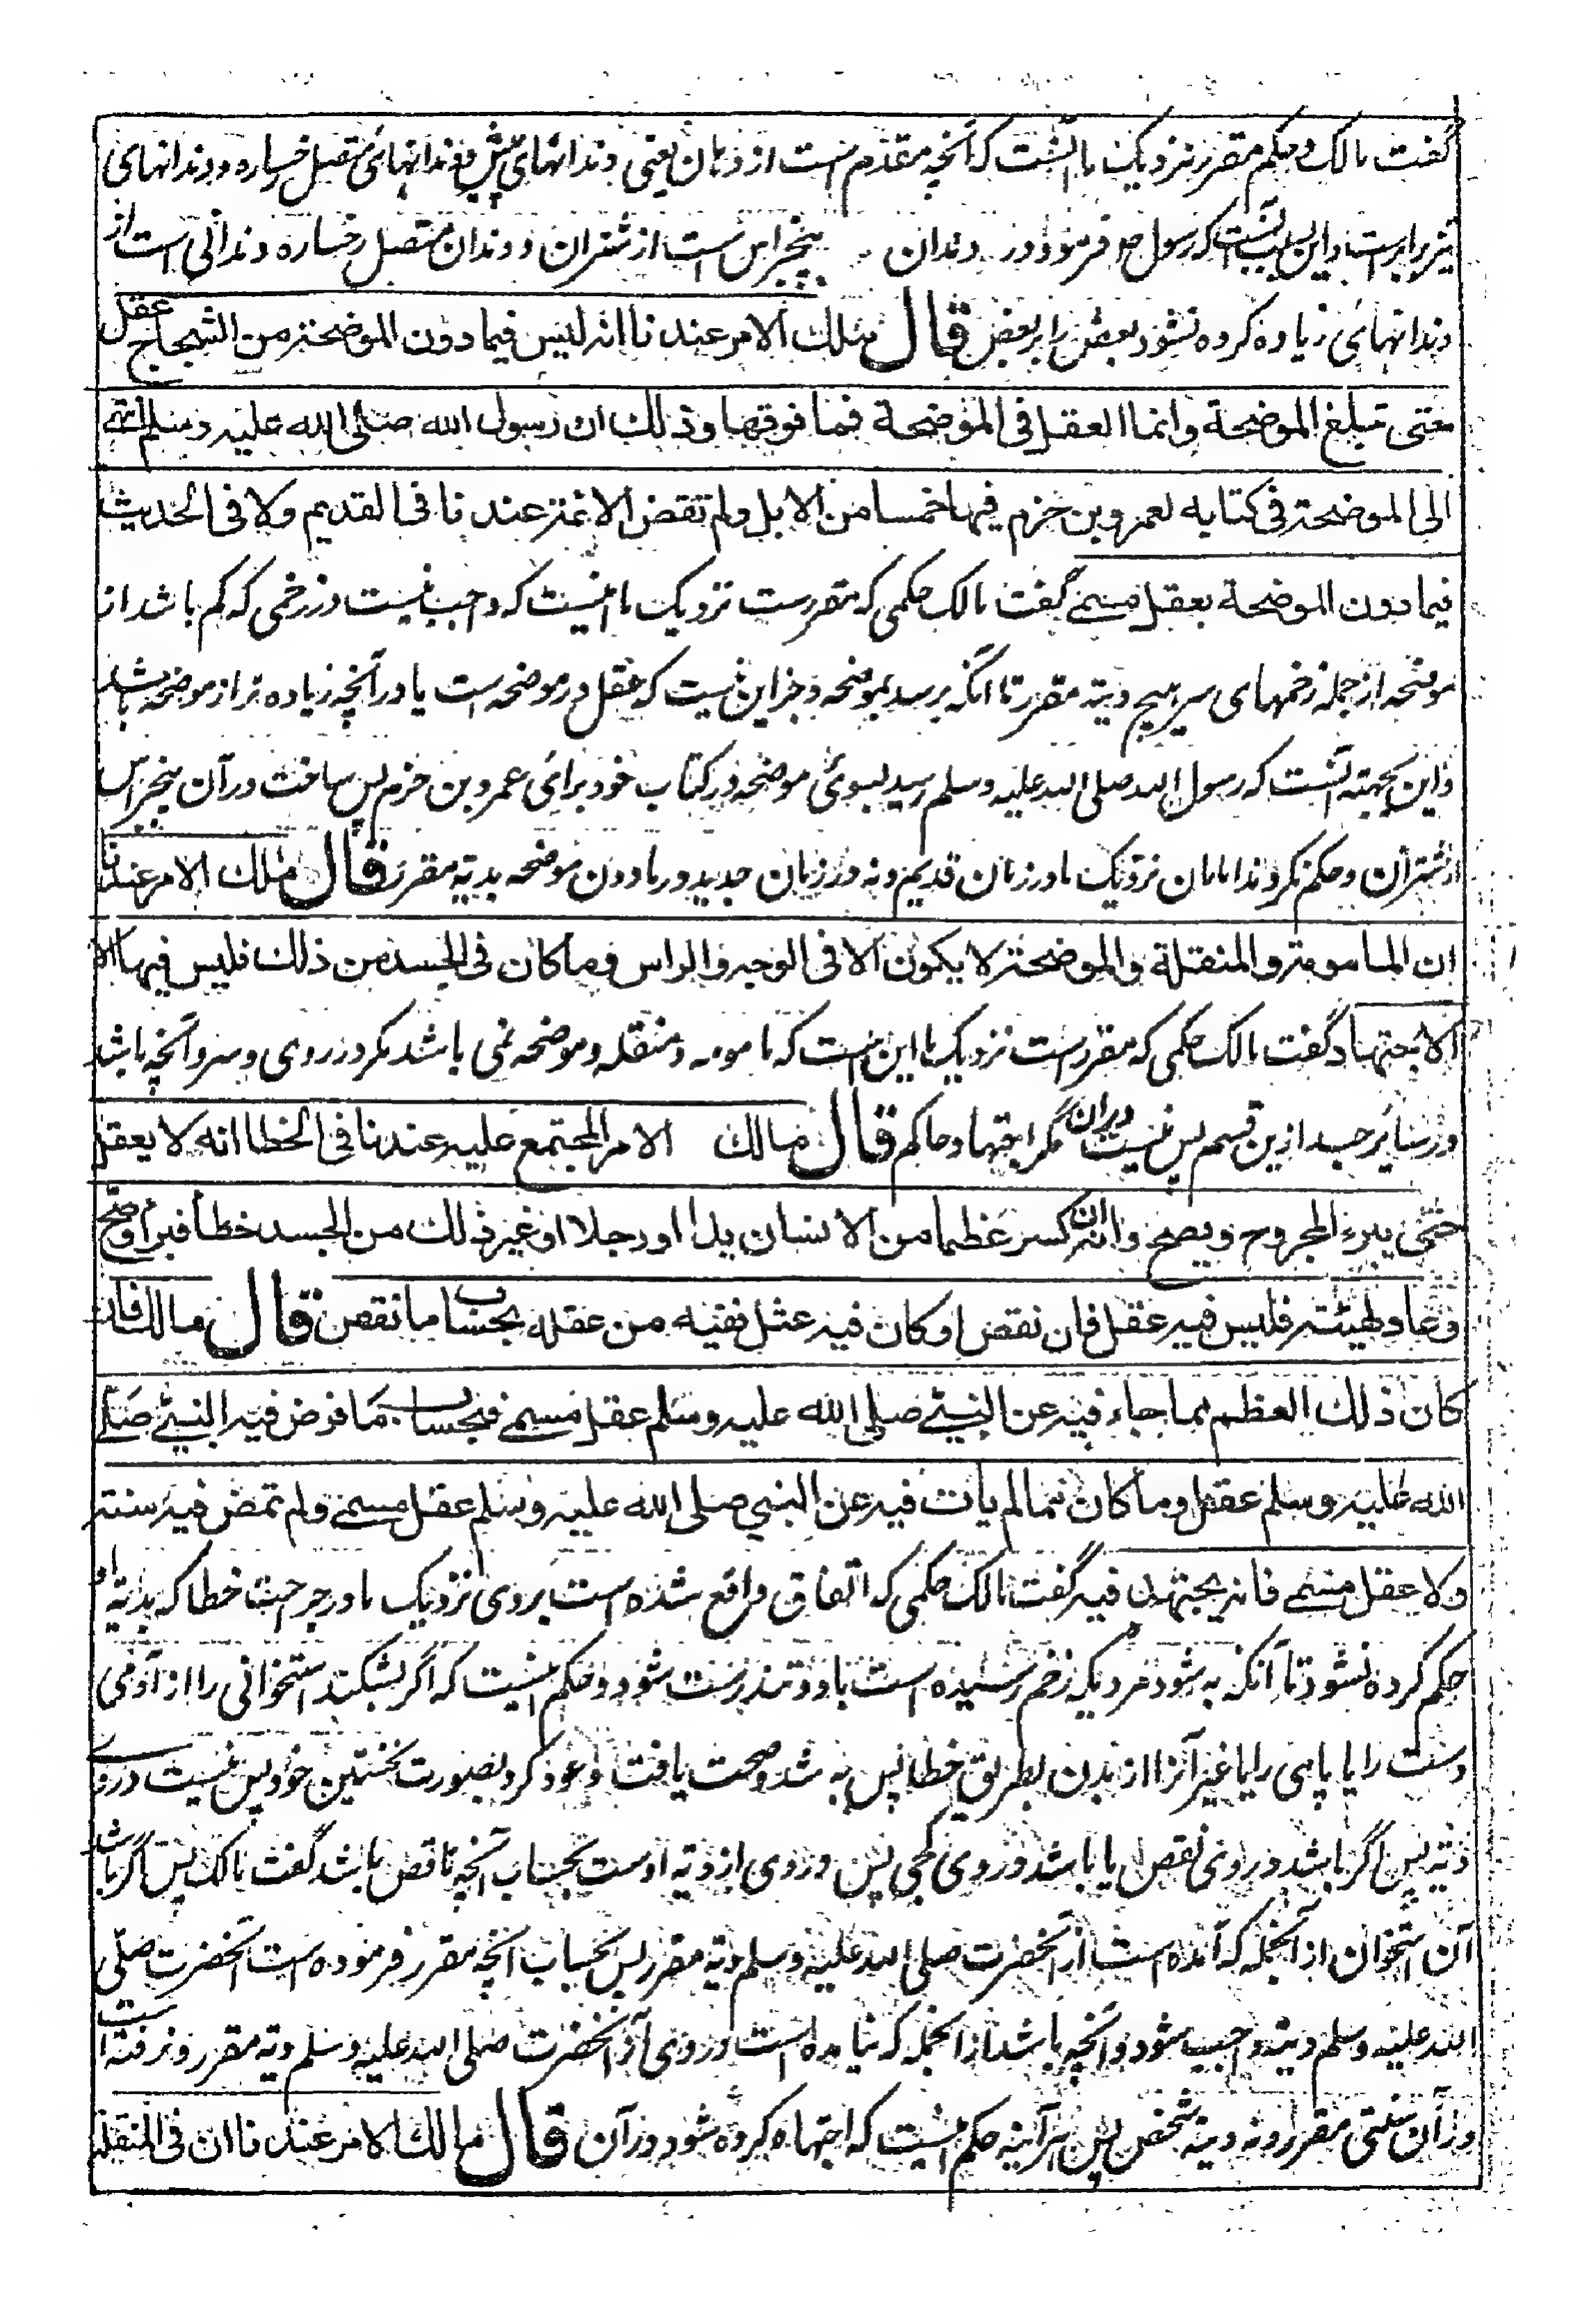 گفت مالک و حکم مقرر نزدیک ما آنست که آنچه مقدم است از دهان یعنی دندانهای پیش و دندانهای متصل رخساره و دندانهای
تیز برابر است و این بسبب آنست که رسول صلعم فرمود در دندان پنجرأس است از شتران و دندان متصل رخساره دندانی است از
دندانهای زیاده کرده نشود بعض را بر بعض قال مالک الامر عندنا انه لیس فیما دون الموضحة من الشجاج عقل
حتی تبلغ الموضحة وانما العقل فی الموضحة فما فوقها وذلك ان رسول الله صلی الله علیه وسلم انتهی
الی الموضحة فی کتابه لعمرو بن حزم فیها خمسا من الابل ولم تقض الائمة عندنا فی القدیم ولا فی الحدیث
فیما دون الموضحة بعقل مسمی گفت مالک حکمی که مقرر ست نزدیک ما اینست که واجب نیست در زخمی که کم باشد از
موضحه از جمله زخمهای سر هیچ دیته مقرر تا آنکه برسد بموضحه و جز این نیست که عقل در موضحه است یا در آنچه زیاده تر از موضحه باشد
و این بجهته آنست که رسول الله صلی الله علیه وسلم رسید بسوئ موضحه در کتاب خود برائ عمرو بن حزم پس ساخت در آن پنجرأس
از شتران و حکم نکردند امامان نزدیک ما در زمان قدیم و نه در زمان جدید در مادون موضحه بدیته مقرر قال مالك الامر عندنا
ان المامومة والمنقلة والموضحة لا یکون الا فی الوجه والراس فما کان فی الجسد من ذلك فلیس فیها الا
الاجتهاد گفت مالک حکمی که مقرر است نزدیک ما این است که مامومه و منقله و موضحه نمی باشد مگر در روی و سر و آنچه باشد
در سایر جسد ازین قسم پس نیست دران مگر اجتهاد حاکم قال مالك الامر المجتمع علیه عندنا فی الخطا انه لا یعقل
حتی یبرء المجروح ویصح وانه ان کسر عظما من الانسان یدا او رجلا او غیر ذلك من الجسد خطأ فبرأ وصح
وعاد لهیئته فلیس فیه عقل فان نقص او کان فیه عثل ففیه من عقله بحساب ما نقص قال مالك فان
کان ذلك العظم مما جاء فیه عن النبی صلی الله علیه وسلم عقل مسمی فبحساب ما فرض فیه النبی صلی
الله علیه وسلم عقل وما کان مما لم یات فیه عن النبی صلی الله علیه وسلم عقل مسمی ولم تمض فیه سنته
ولا عقل مسمی فانه یجتهد فیه گفت مالک حکمی که اتفاق واقع شده است بروی نزدیک ما در جراحت خطا که بدیته او
حکم کرده نشود تا آنکه به شود مردیکه زخم رسیده است باو و تندرست شود و حکم اینست که اگر بشکند استخوانی را از آدمی
دست را یا پای را یا غیر آنرا از بدن بطریق خطا پس به شد و صحت یافت و عود کرد بصورت نخستین خود پس نیست درو
دیته پس اگر باشد در وی نقص یا باشد در وی کجی پس در وی از دیته اوست بحساب آنچه ناقص باشد گفت مالک پس اگر باشد
آن استخوان از آنجمله که آمده است از آنحضرت صلی الله علیه وسلم دیته مقرر پس بحساب آنچه مقرر فرموده است آنحضرت صلی
الله علیه وسلم دیته واجب شود و آنچه باشد از آنجمله که نیامده است در وی از آنحضرت صلی الله علیه وسلم دیته مقرر و نرفته است
در آن سنتی مقرر و نه دیته مشخص پس هر آئینه حکم اینست که اجتهاد کرده شود در آن قال مالك الامر عندنا ان فی المنقلة